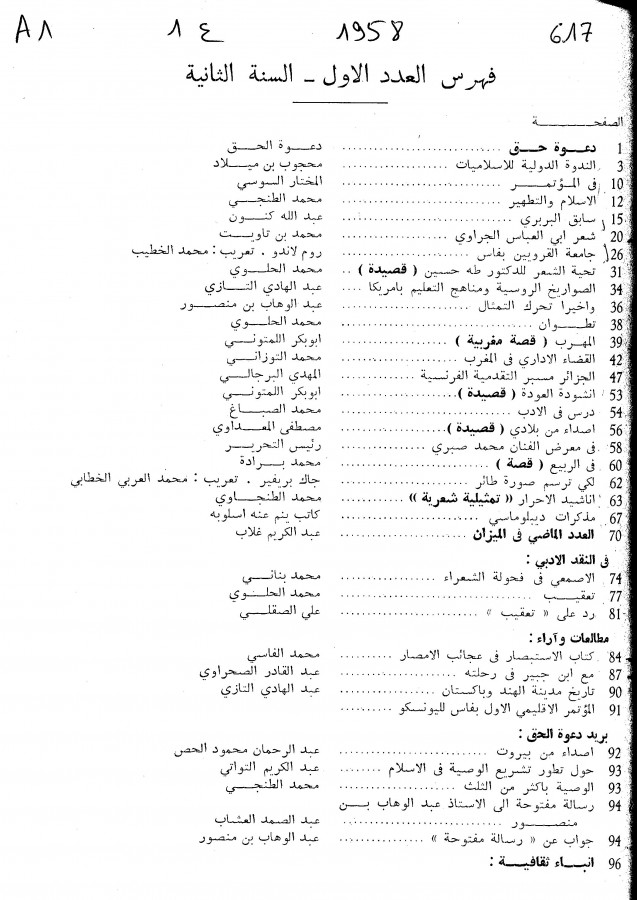 A1 1 ع 1958 617
فهرس العدد الاول - السنة الثانية
الصفحة
1 دعوة حق .......... دعوة الحق
3 الندوة الدولية للاسلاميات .......... محجوب بن ميلاد
10 فى المؤتمر .......... المختار السوسي
12 الاسلام والتطهير .......... محمد الطنجي
15 سابق البربري .......... عبد الله كنون
20 شعر ابي العباس الجراوي .......... محمد بن تاويت
26 جامعة القرويين بفاس .......... روم لاندو . تعريب : محمد الخطيب
31 تحية الشعر للدكتور طه حسين ( قصيدة ) .. محمد الحلوي
34 الصواريخ الروسية ومناهج التعليم بامريكا .... عبد الهادي التازي
36 واخيرا تحرك التمثال .......... عبد الوهاب بن منصور
38 تطوان .......... محمد الحلوي
39 المهرب ( قصة مغربية ) .......... ابوبكر اللمتوني
42 القضاء الاداري فى المغرب .......... محمد التوزاني
47 الجزائر مسبر التقدمية الفرنسية .......... المهدي البرجالي
53 انشودة العودة ( قصيدة ) .......... ابوبكر اللمتوني
54 درس فى الادب .......... محمد الصباغ
56 اصداء من بلادي ( قصيدة ) .......... مصطفى المعداوي
58 فى معرض الفنان محمد صبري .......... رئيس التحرير
60 فى الربيع ( قصة ) .......... محمد برادة
62 لكي ترسم صورة طائر .......... جاك بريفير . تعريب : محمد العربي الخطابي
63 اناشيد الاحرار « تمثيلية شعرية » .......... محمد الطنجاوي
67 مذكرات ديبلوماسي .......... كاتب ينم عنه اسلوبه
70 العدد الماضي فى الميزان .......... عبد الكريم غلاب
فى النقد الادبي :
74 الاصمعي فى فحولة الشعراء .......... محمد بناني
77 تعقيب .......... محمد الحلوي
81 رد على « تعقيب » .......... علي الصقلي
مطالعات وآراء :
84 كتاب الاستبصار فى عجائب الامصار .......... محمد الفاسي
87 مع ابن جبير فى رحلته .......... عبد القادر الصحراوي
90 تاريخ مدينة الهند وباكستان .......... عبد الهادي التازي
91 المؤتمر الاقليمي الاول بفاس لليونسكو ..........
بريد دعوة الحق :
92 اصداء من بيروت .......... عبد الرحمان محمود الحص
93 حول تطور تشريع الوصية فى الاسلام .......... عبد الكريم التواتي
93 الوصية باكثر من الثلث .......... محمد الطنجي
94 رسالة مفتوحة الى الاستاذ عبد الوهاب بن
منصور .......... عبد الصمد العشاب
94 جواب عن « رسالة مفتوحة » .......... عبد الوهاب بن منصور
96 انباء ثقافية :